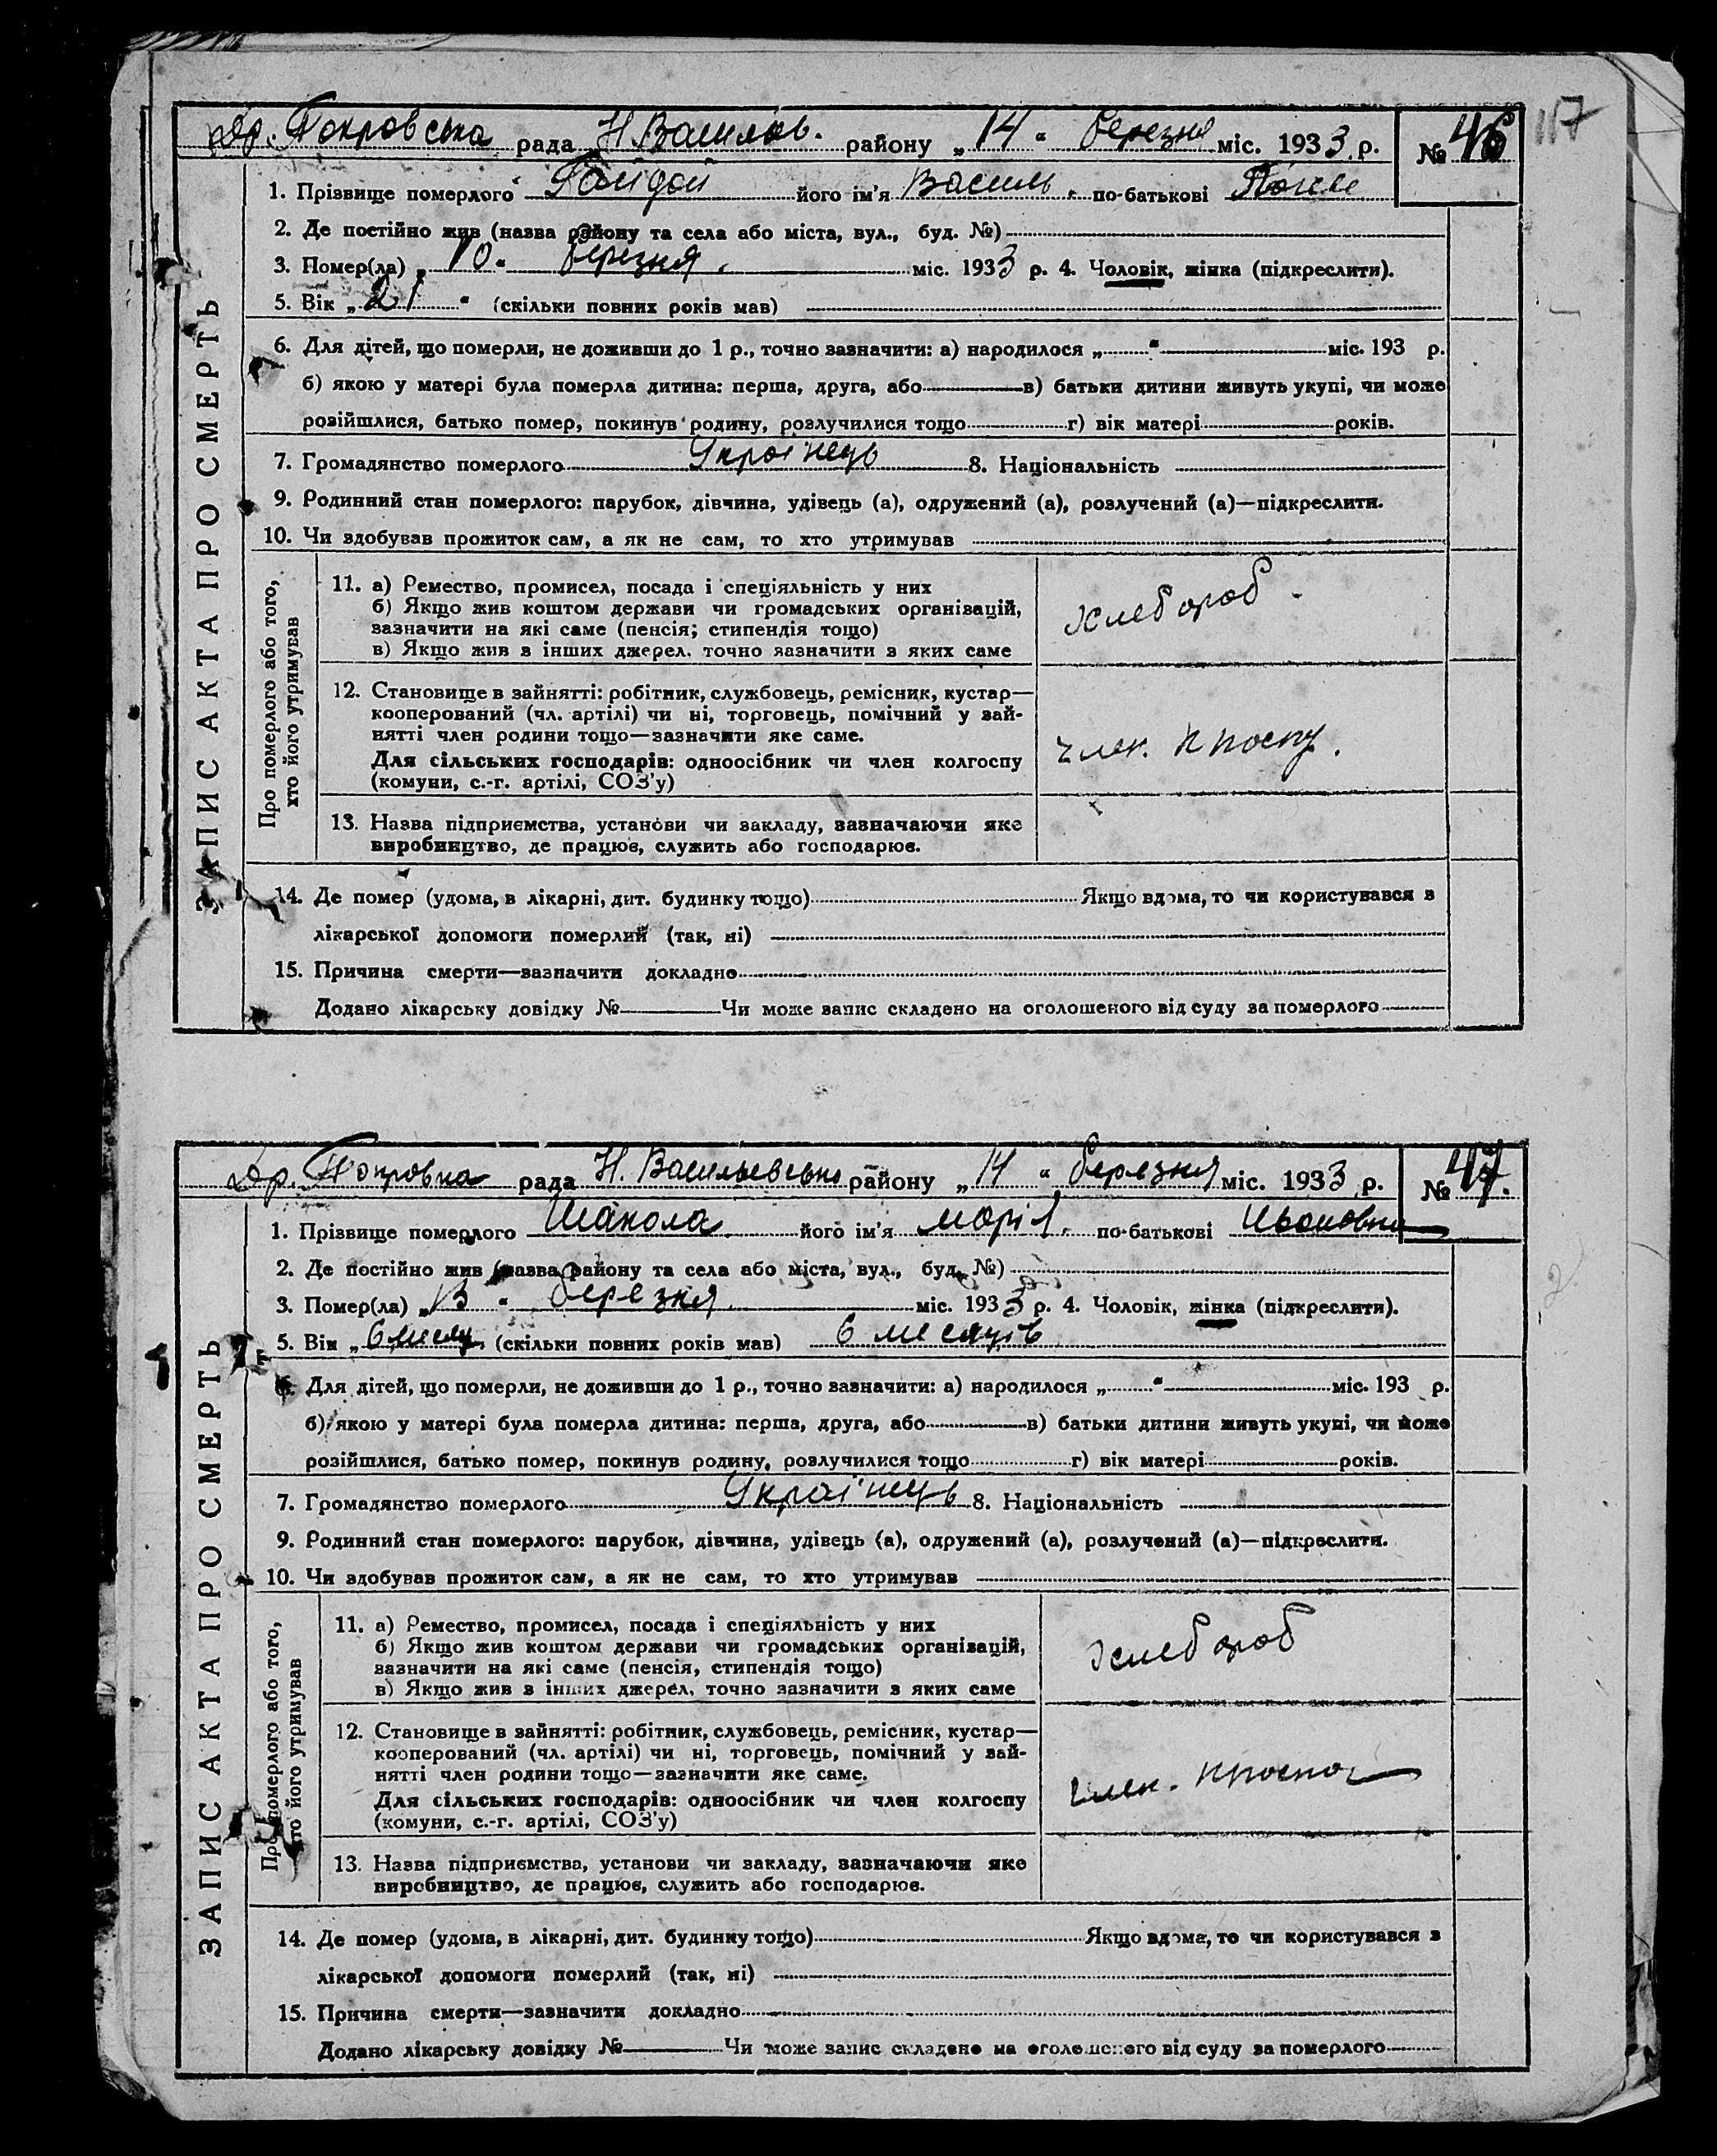 Др. Покровська рада Н. Васильев. району „14“ березня міс. 1933 р. № 46 117
1. Прізвище померлого Гайдай його ім'я Василь по-батькові
2. Де постійно жив (назва району та села або міста, вул., буд. №)
3. Помер(ла) „10“ березня міс. 1933 р. 4. Чоловік, жінка (підкреслити).
5. Вік „21“ (скільки повних років мав)
6. Для дітей, що померли, не доживши до 1 р., точно зазначити: а) народилося „ “ міс. 193 р.
б) якою у матері була померла дитина: перша, друга, або в) батьки дитини живуть укупі, чи може
розійшлися, батько помер, покинув родину, розлучилися тощо г) вік матері років.
7. Громадянство померлого Українець 8. Національність
9. Родинний стан померлого: парубок, дівчина, удівець (а), одружений (а), розлучений (а)—підкреслити.
10. Чи здобував прожиток сам, а як не сам, то хто утримував
ЗАПИС АКТА ПРО СМЕРТЬ
Про померлого або того,
хто його утримував
11. а) Ремество, промисел, посада і спеціяльність у них
б) Якщо жив коштом держави чи громадських організацій,
зазначити на які саме (пенсія; стипендія тощо)
в) Якщо жив з інших джерел, точно зазначити з яких саме
хлебороб.
12. Становище в зайнятті: робітник, службовець, ремісник, кустар—
кооперований (чл. артілі) чи ні, торговець, помічний у зай-
нятті член родини тощо—зазначити яке саме.
Для сільських господарів: одноосібник чи член колгоспу
(комуни, с.-г. артілі, СОЗ'у)
член.
13. Назва підприємства, установи чи закладу, зазначаючи яке
виробництво, де працює, служить або господарює.
14. Де помер (удома, в лікарні, дит. будинку тощо) Якщо вдома, то чи користувався з
лікарської допомоги померлий (так, ні)
15. Причина смерти—зазначити докладно
Додано лікарську довідку № Чи може запис складено на оголошеного від суду за померлого
Др. Покровка рада Н. Васильевська району „14“ березня міс. 1933 р. № 47.
1. Прізвище померлого Шакола його ім'я Марія по-батькові
2. Де постійно жив (назва району та села або міста, вул., буд. №)
3. Помер(ла) „13“ березня міс. 1933 р. 4. Чоловік, жінка (підкреслити).
5. Вік „6 месяц. (скільки повних років мав) 6 месяців
6. Для дітей, що померли, не доживши до 1 р., точно зазначити: а) народилося „ “ міс. 193 р.
б) якою у матері була померла дитина: перша, друга, або в) батьки дитини живуть укупі, чи може
розійшлися, батько помер, покинув родину, розлучилися тощо г) вік матері років.
7. Громадянство померлого Українець 8. Національність
9. Родинний стан померлого: парубок, дівчина, удівець (а), одружений (а), розлучений (а)—підкреслити.
10. Чи здобував прожиток сам, а як не сам, то хто утримував
ЗАПИС АКТА ПРО СМЕРТЬ
Про померлого або того,
хто його утримував
11. а) Ремество, промисел, посада і спеціяльність у них
б) Якщо жив коштом держави чи громадських організацій,
зазначити на які саме (пенсія, стипендія тощо)
в) Якщо жив з інших джерел, точно зазначити з яких саме
хлебороб
12. Становище в зайнятті: робітник, службовець, ремісник, кустар—
кооперований (чл. артілі) чи ні, торговець, помічний у зай-
нятті член родини тощо—зазначити яке саме.
Для сільських господарів: одноосібник чи член колгоспу
(комуни, с.-г. артілі, СОЗ'у)
член.
13. Назва підприємства, установи чи закладу, зазначаючи яке
виробництво, де працює, служить або господарює.
14. Де помер (удома, в лікарні, дит. будинку тощо) Якщо вдома, то чи користувався з
лікарської допомоги померлий (так, ні)
15. Причина смерти—зазначити докладно
Додано лікарську довідку № Чи може запис складено на оголошеного від суду за померлого